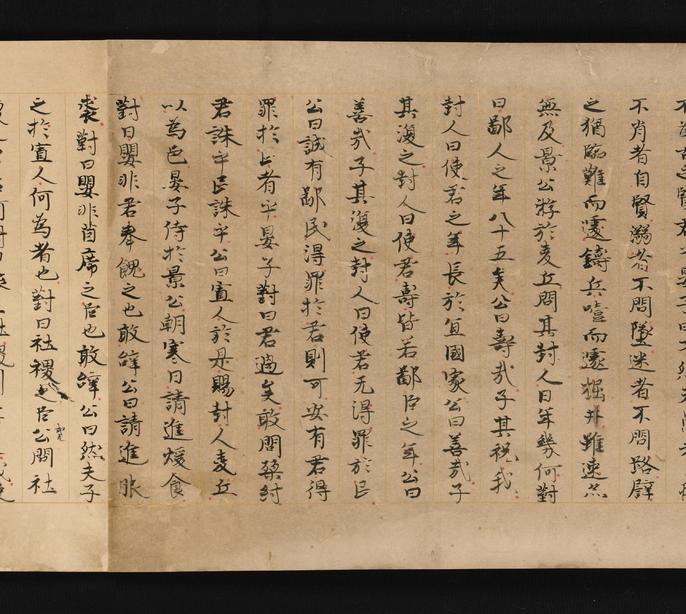 不肖者自賢溺者不問墜迷者不問路譬
之猶臨難而遽鑄兵噎而遽掘井雖速亦
無及景公游於麦丘問其封人曰年幾何對
曰鄙人之年八十五矣公曰壽哉子其祝我
封人曰使君之年長於宜國家公曰善哉子
其復之封人曰使君壽皆若鄙臣之年公曰
善哉子其復之封人曰使君无得罪於民
公曰誠有鄙民得罪於君則可安有君得
罪於民者乎晏子對曰君過矣敢問桀紂
君誅乎民誅乎公曰寡人於是賜封人麦丘
以為邑晏子侍於景公朝寒曰請進煖食
對曰嬰非君奉餽之也敢辞公曰請進服
裘對曰嬰非茵席之臣也敢辞公曰然夫子
之於寡人何為者也對曰社稷之臣公問社